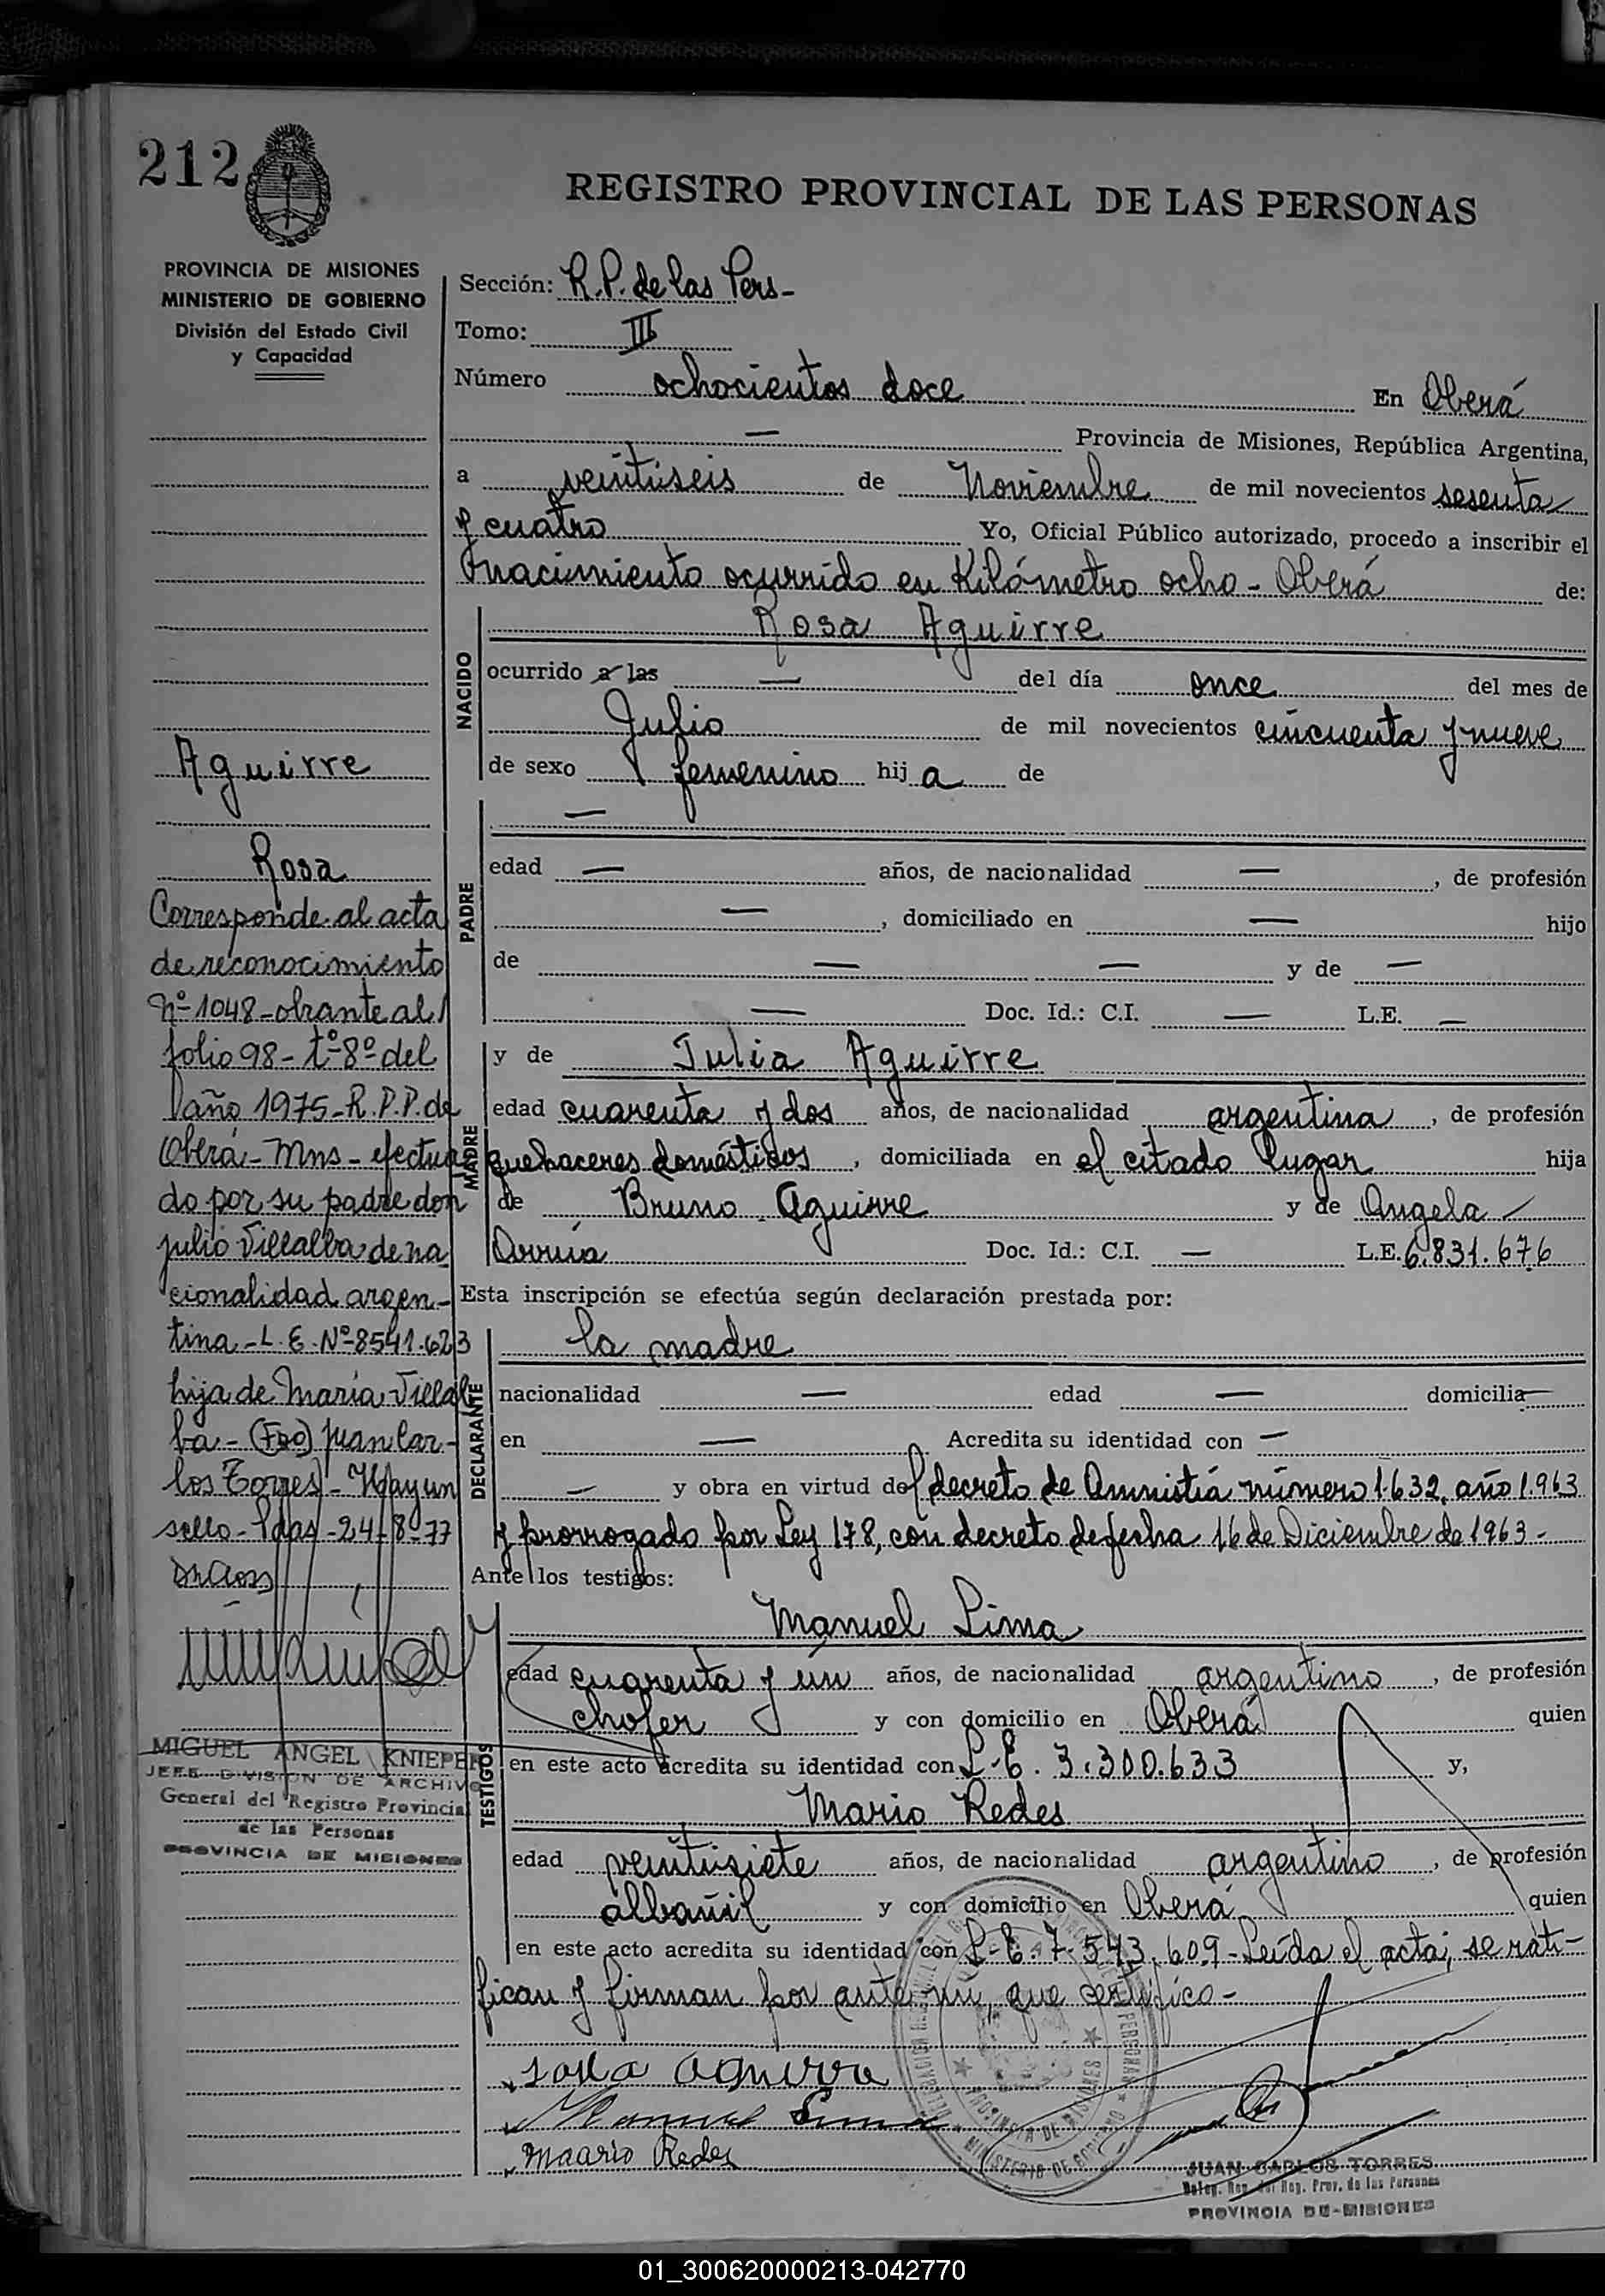 212
REGISTRO PROVINCIAL DE LAS PERSONAS
PROVINCIA DE MISIONES
MINISTERIO DE GOBIERNO
División del Estado Civil
y Capacidad
Aguirre
Rosa
Corresponde al acta
de reconocimiento
Nº 1048 - obrante al
folio 98 - tº 8º del
año 1975 - R.P.P. de
Oberá - Mns - efectua
do por su padre don
Julio Villalba de na
cionalidad argen-
tina - L.E. Nº 8541.623
hija de María Villal
ba - (Fdo) Juan Car-
los Torres - Hay un
sello - Pdas - 24-8-77
MIGUEL ANGEL KNIEPER
JEFE DIVISION DE ARCHIVO
General del Registro Provincial
de las Personas
PROVINCIA DE MISIONES
Sección: R.P. de las Pers-
Tomo: III
Número ochocientos doce En Oberá
— Provincia de Misiones, República Argentina,
a veintiseis de Noviembre de mil novecientos sesenta
y cuatro Yo, Oficial Público autorizado, procedo a inscribir el
nacimiento ocurrido en Kilómetro ocho - Oberá de:
NACIDO
Rosa Aguirre
ocurrido a las — del día once del mes de
Julio de mil novecientos cincuenta y nueve
de sexo femenino hija de
PADRE
—
edad — años, de nacionalidad —, de profesión
—, domiciliado en — hijo
de — — y de —
— Doc. Id.: C.I. — L.E. —
MADRE
y de Julia Aguirre
edad cuarenta y dos años, de nacionalidad argentina, de profesión
quehaceres domésticos, domiciliada en el citado lugar hija
de Bruno Aguirre y de Angela —
Arrúa Doc. Id.: C.I. — L.E. 6.831.676
Esta inscripción se efectúa según declaración prestada por:
DECLARANTE
la madre
nacionalidad — edad — domicilia—
en — Acredita su identidad con —
— y obra en virtud del decreto de Amnistía número 1.632, año 1.963
y prorrogado por Ley 178, con decreto de fecha 16 de Diciembre de 1963 -
Ante los testigos:
TESTIGOS
Manuel Lima
edad cuarenta y un años, de nacionalidad argentino, de profesión
chofer y con domicilio en Oberá quien
en este acto acredita su identidad con L.E. 3.300.633 y,
Mario Redes
edad veintisiete años, de nacionalidad argentino, de profesión
albañil y con domicilio en Oberá quien
en este acto acredita su identidad con L.E. 7.543.609 - Leída el acta, se rati-
fican y firman por ante mi, que certifico -
Manuel Lima
Maario Redes
PROVINCIA DE MISIONES
MINISTERIO DE GOBIERNO
JUAN CARLOS TORRES
Deleg. Reg. del Reg. Prov. de las Personas
PROVINCIA DE MISIONES
01_300620000213-042770